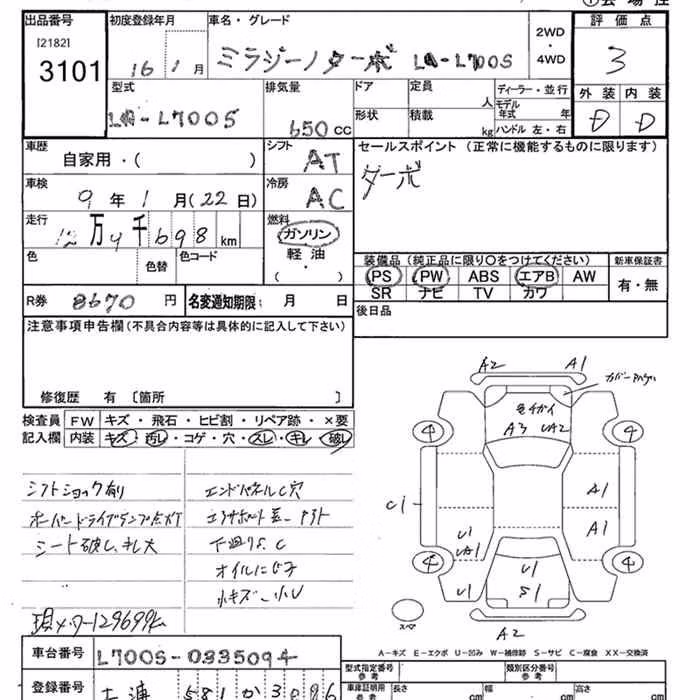 出品番号 初度登録年月 車名・グレード 評価点
[2182] 3101
16 年 1 月 ミラジーノターボ LA-L700S 2WD・4WD 3
型式 排気量 ドア 定員 人 ディーラー・並行 外装 内装
LA-L700S 650cc 形状 積載 kg モデル年式 年 ハンドル 左・右 D D
車歴 自家用・( ) シフト AT セールスポイント (正常に機能するものに限ります)
ターボ
車検 9年1月(22日) 冷房 AC
走行 12万4千698km 燃料 ガソリン 軽油 ( )
色 色替 色コード
装備品(純正品に限り○をつけてください) 新車保証書
PS PW ABS エアB AW 有・無
SR ナビ TV カワ
R券 8670円 名変通知期限: 月 日 後日品
注意事項申告欄(不具合内容等は具体的に記入して下さい)
修復歴 有 [箇所 ]
検査員記入欄 FW キズ・飛石・ヒビ割・リペア跡・×要
内装 キズ・汚レ・コゲ・穴・スレ・キレ・破レ
シフトショック有り
オーバードライブランプ点灯
シート破レ、キレ大
現メーター129699km
エンドパネルC穴
下廻りS、C
オイルにじみ
小キズ、小U
A2 A1
A3 UA2
4 4
C1 A1
U1 UA1 A1
4 4
U1 U1 S1
スペア A2
A-キズ E-エクボ U-凹み W-補修跡 S-サビ C-腐食 XX-交換済
車台番号 L700S-0335094
型式指定番号 参考 類別区分番号 参考
登録番号 581 か 3096
車庫証明用 参考 長さ cm 幅 cm 高さ cm